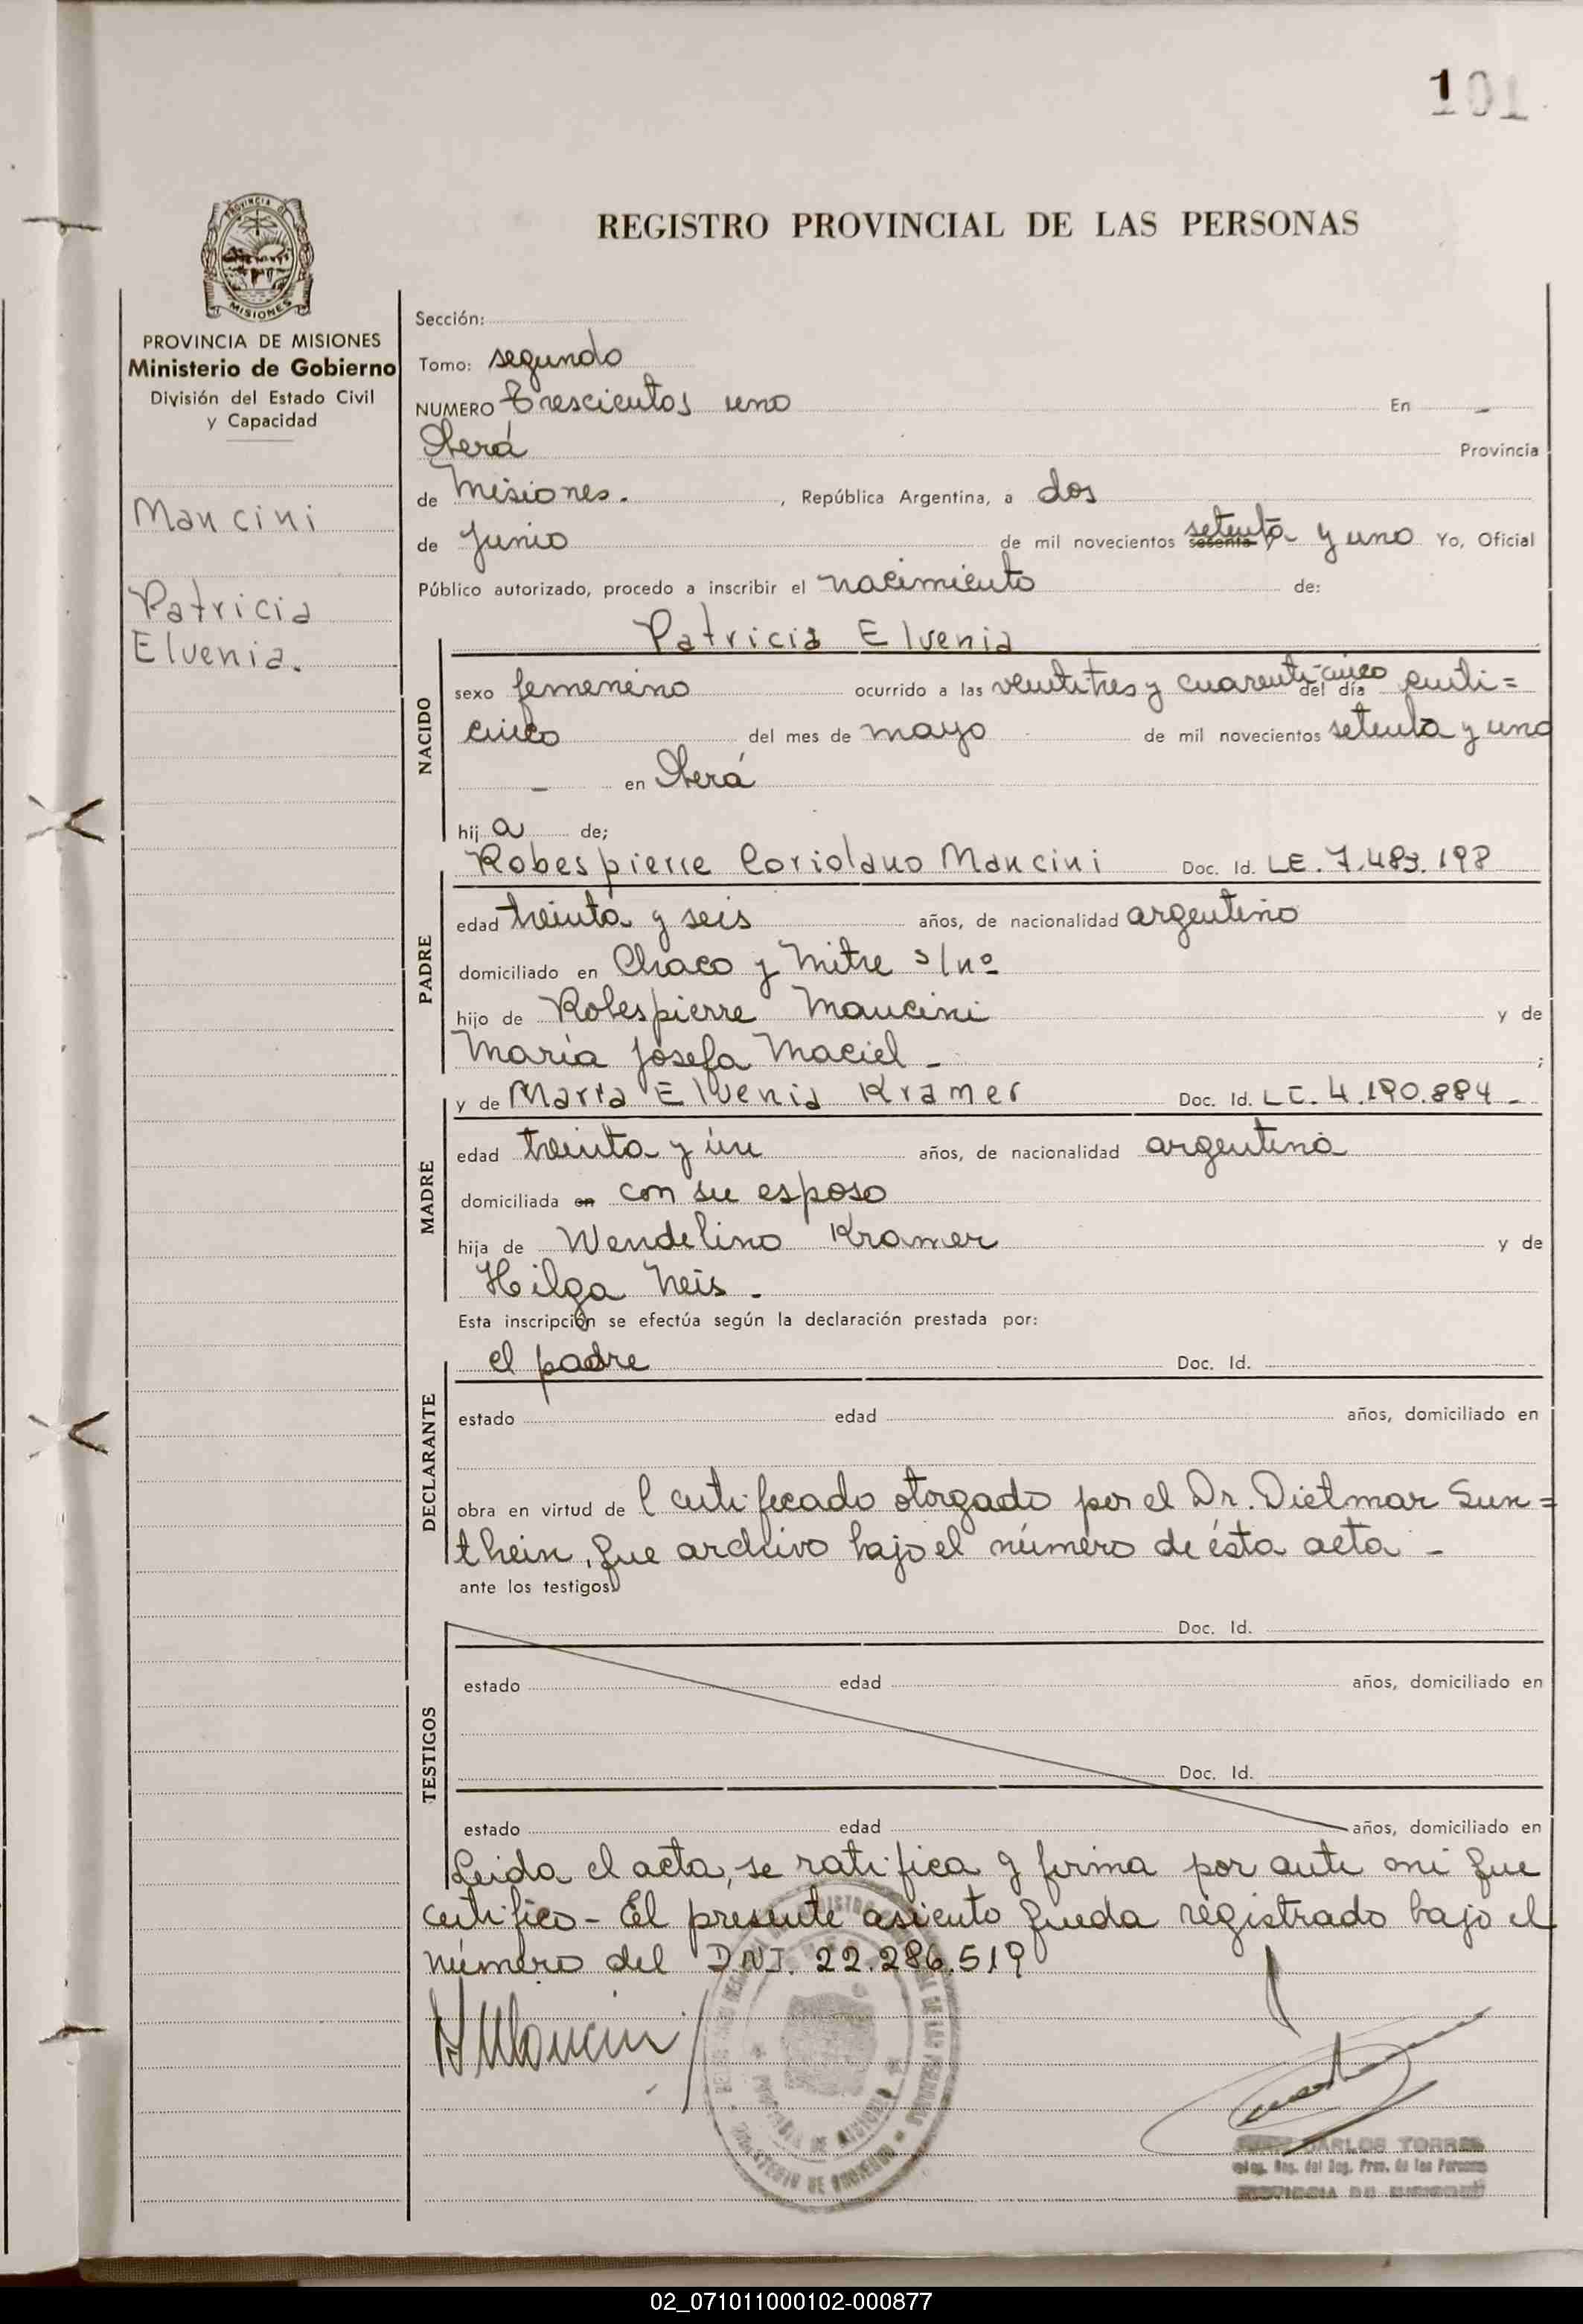 101
REGISTRO PROVINCIAL DE LAS PERSONAS
PROVINCIA DE
MISIONES
PROVINCIA DE MISIONES
Ministerio de Gobierno
División del Estado Civil
y Capacidad
Mancini
Patricia
Elvenia.
Sección:
Tomo: segundo
NUMERO Trescientos uno En -
Oberá Provincia
de Misiones. , República Argentina, a dos
de Junio de mil novecientos sesenta y setenta y uno Yo, Oficial
Público autorizado, procedo a inscribir el nacimiento de:
Patricia Elvenia
NACIDO
sexo femenino ocurrido a las veintitres y cuarenticinco del día veinti=
cinco del mes de mayo de mil novecientos setenta y uno
- en Oberá
hij a de;
PADRE
Robespierre Coriolano Mancini Doc. Id. LE. 7.483.198
edad treinta y seis años, de nacionalidad argentino
domiciliado en Chaco y Mitre s/nº
hijo de Robespierre Mancini y de
María Josefa Maciel - ;
MADRE
y de María Elvenia Kramer Doc. Id. LC. 4.190.884 -
edad treinta y ún años, de nacionalidad argentina
domiciliada en con su esposo
hija de Wendelino Kramer y de
Hilga Neis.
Esta inscripción se efectúa según la declaración prestada por:
DECLARANTE
el padre Doc. Id.
estado edad años, domiciliado en
obra en virtud de l certificado otorgado por el Dr. Dietmar Sun=
thein, que archivo bajo el número de ésta acta -
ante los testigos
TESTIGOS
Doc. Id.
estado edad años, domiciliado en
Doc. Id.
estado edad años, domiciliado en
Leida el acta, se ratifica y firma por ante mi que
certifico - El presente asiento queda registrado bajo el
número del D.N.I. 22.286.519
CARLOS TORRES
Reg. del Reg. Prov. de las Personas
PROVINCIA DE MISIONES
02_071011000102-000877